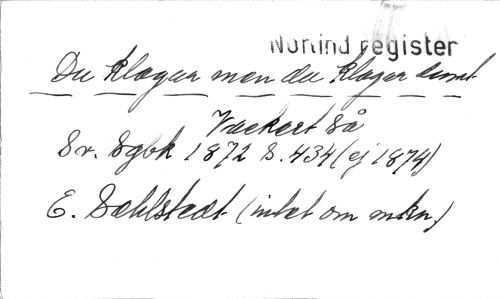 Norlind register
Du klagar men du klagar dumt
Vackert så
Sv. Sgbk 1872 S. 434 (ej 1874)
E. Sehlstedt (intet om mkn)